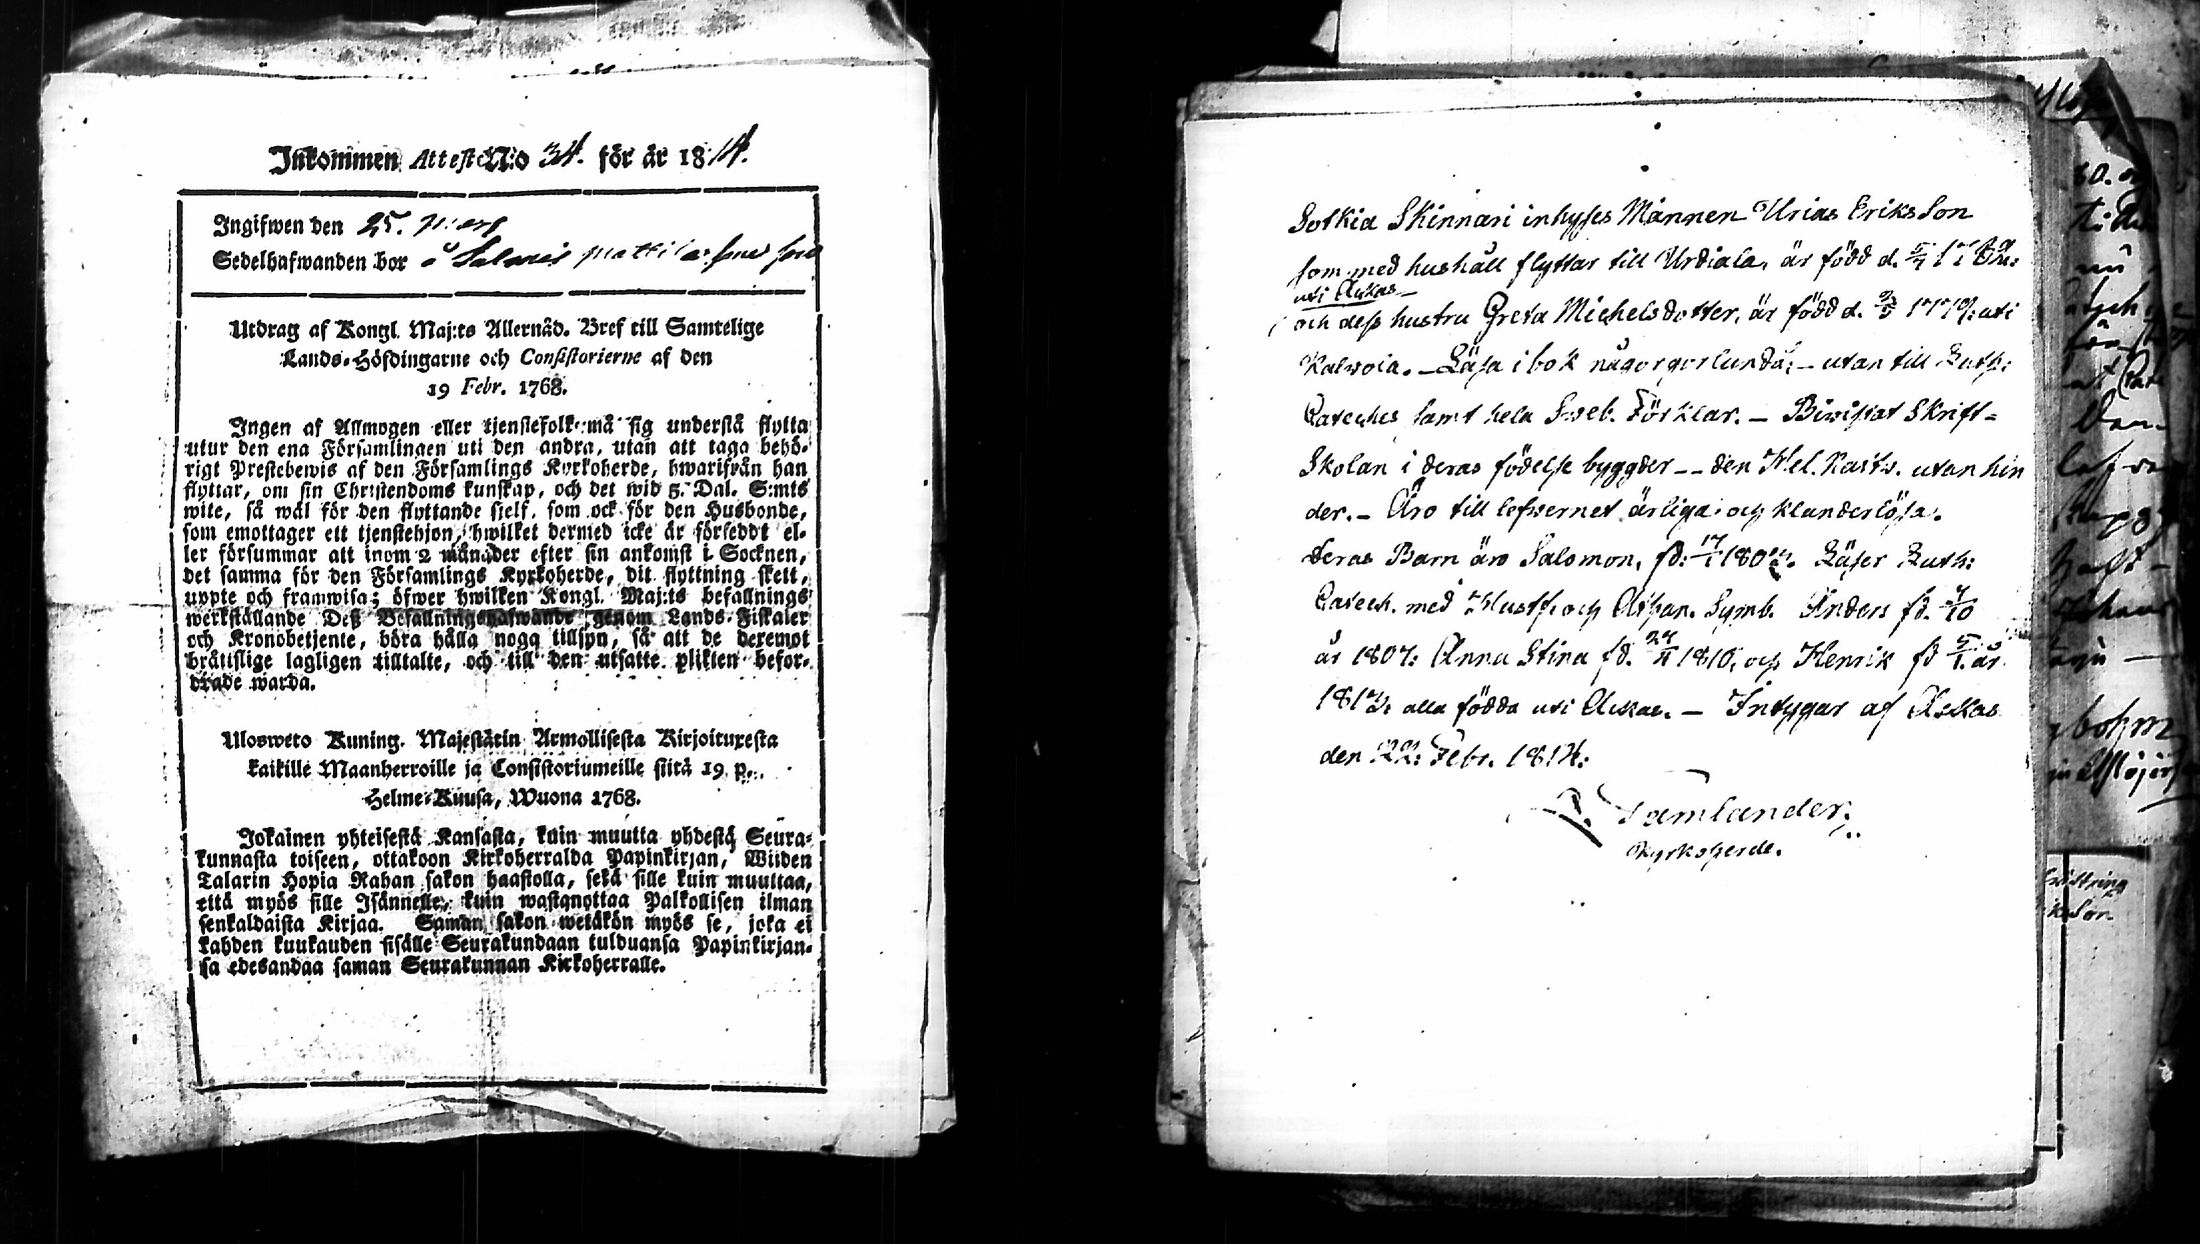 Inkommen Attest N:o 34. för år 1814.
Ingifwen den 25. Mars
Sedelhafwanden bor å Salmis Mattila
Utdrag af Kongl. Maj:ts Allernåd. Bref till Samtelige
Lands-Höfdingarne och Consistorierne af den
19 Febr. 1768.
Ingen af Allmogen eller tjenstefolk må sig understå flytta
utur den ena Församlingen uti den andra, utan att taga behö-
rigt Prestebewis af den Församlings Kyrkoherde, hwarifrån han
flyttar, om sin Christendoms kunskap, och det wid 5. Dal. S:mts
wite, så wäl för den flyttande sielf, som ock för den Husbonde,
som emottager ett tjenstehjon, hwilket dermed icke är förseddt el-
ler försummar att inom 2 månader efter sin ankomst i Socknen,
det samma för den Församlings Kyrkoherde, dit flyttning skett,
uppte och framwisa; öfwer hwilken Kongl. Maj:ts befallnings
werkställande Deß Befallningshafwande genom Lands-Fiskaler
och Kronobetjente, böra hålla noga tillsyn, så att de deremot
bråttslige lagligen tilltalte, och till den utsatte plikten befor-
drade warda.
Ulosweto Kuning. Majestätin Armollisesta Kirjoituxesta
kaikille Maanherroille ja Consistoriumeille siitä 19 p.
Helme-Kuusa, Wuona 1768.
Jokainen yhteisestä Kansasta, kuin muutta yhdestä Seura-
kunnasta toiseen, ottakoon Kirkoherralda Papinkirjan, Wiiden
Talarin Hopia Rahan sakon haastolla, sekä sille kuin muuttaa,
että myös sille Isännelle, kuin wastanottaa Palkollisen ilman
senkaldaista Kirjaa. Saman sakon wetäkön myös se, joka ei
kahden kuukauden sisälle Seurakundaan tulduansa Papinkirjan-
sa edesandaa saman Seurakunnan Kirkoherralle.
Sotkia Skinnari inhyses Mannen Urias Eriks Son
som med hushåll flyttar till Urdiala, är född d.
uti Ackas
och dess hustru Greta Michelsdotter, är född d. uti
Kalwola. – Läsa i bok någorgorlunda; – utan till Luth:
Cateches samt hela Sweb. Förklar. – Biwistat Skrift-
Skolan i deras födelse bygder – den H. Nattv. utan hin
der. – Äro till lefwernet ärliga och klanderlösa.
Deras Barn äro Salomon, fd: Läser Luth:
Catech. med Hustf. och Athan. Symb. Anders fd. 4/10
år 1807: Anna Stina fd. 1810, och Henrik fd 5/1. år
1813: alla födda uti Ackas. – Intygar af Ackas
den 22: Febr. 1814:
Tamlander.
Kyrkoherde.